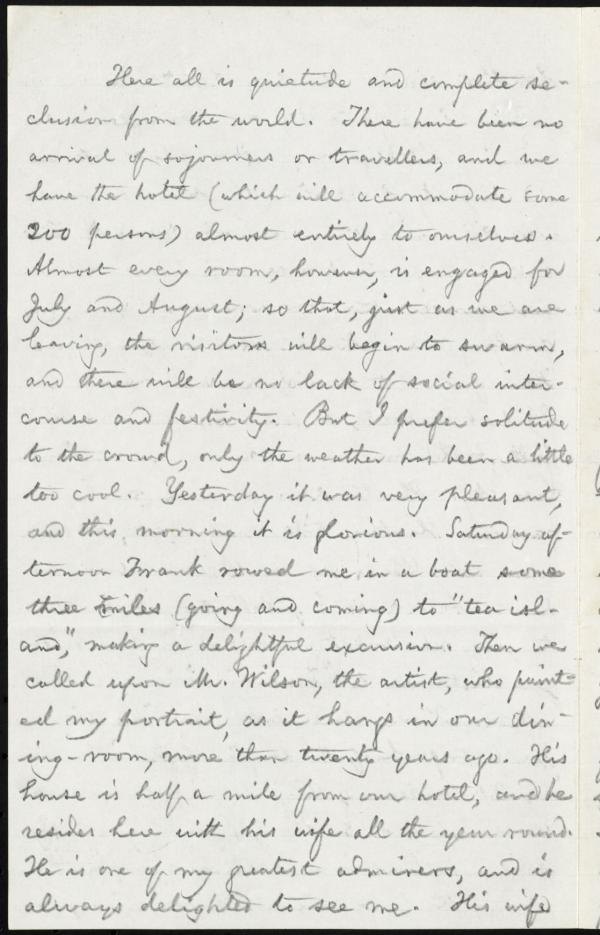 Here all is quietude and complete se-
clusion from the world. There have been no
arrival of sojourners or travellers, and we
have the hotel (which will accommodate some
200 persons) almost entirely to ourselves.
Almost every room, however, is engaged for
July and August; so that, just as we are
leaving, the visitors will begin to swarm,
and there will be no lack of social inter-
course and festivity. But I prefer solitude
to the crowd, only the weather has been a little
too cool. Yesterday it was very pleasant,
and this morning it is glorious. Saturday af-
ternoon Frank rowed me in a boat some
three miles (going and coming) to "tea isl-
and," making a delightful excursion. Then we
called upon Mr. Wilson, the artist, who paint-
ed my portrait, as it hangs in our din-
ing-room, more than twenty years ago. His
house is half a mile from our hotel, and he
resides here with his wife all the year round.
He is one of my greatest admirers, and is
always delighted to see me. His wife